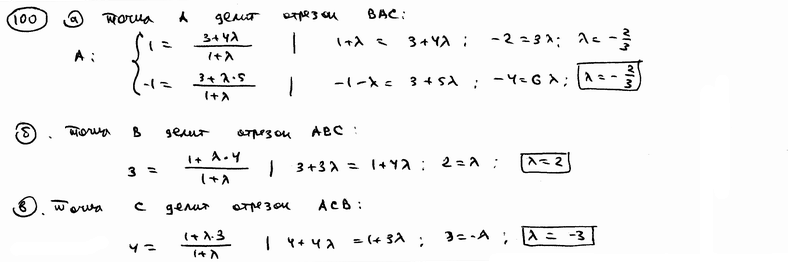 100 а) точка A делит отрезок BAC:
A: { 1 = (3+4λ)/(1+λ) | 1+λ = 3+4λ ; -2 = 3λ; λ = -2/3
-1 = (3+λ·5)/(1+λ) | -1-λ = 3+5λ ; -4=6λ; λ = -2/3
б). точка B делит отрезок ABC:
3 = (1+λ·4)/(1+λ) | 3+3λ = 1+4λ ; 2=λ ; λ=2
в). точка C делит отрезок ACB:
4 = (1+λ·3)/(1+λ) | 4+4λ =1+3λ ; 3=-λ ; λ = -3